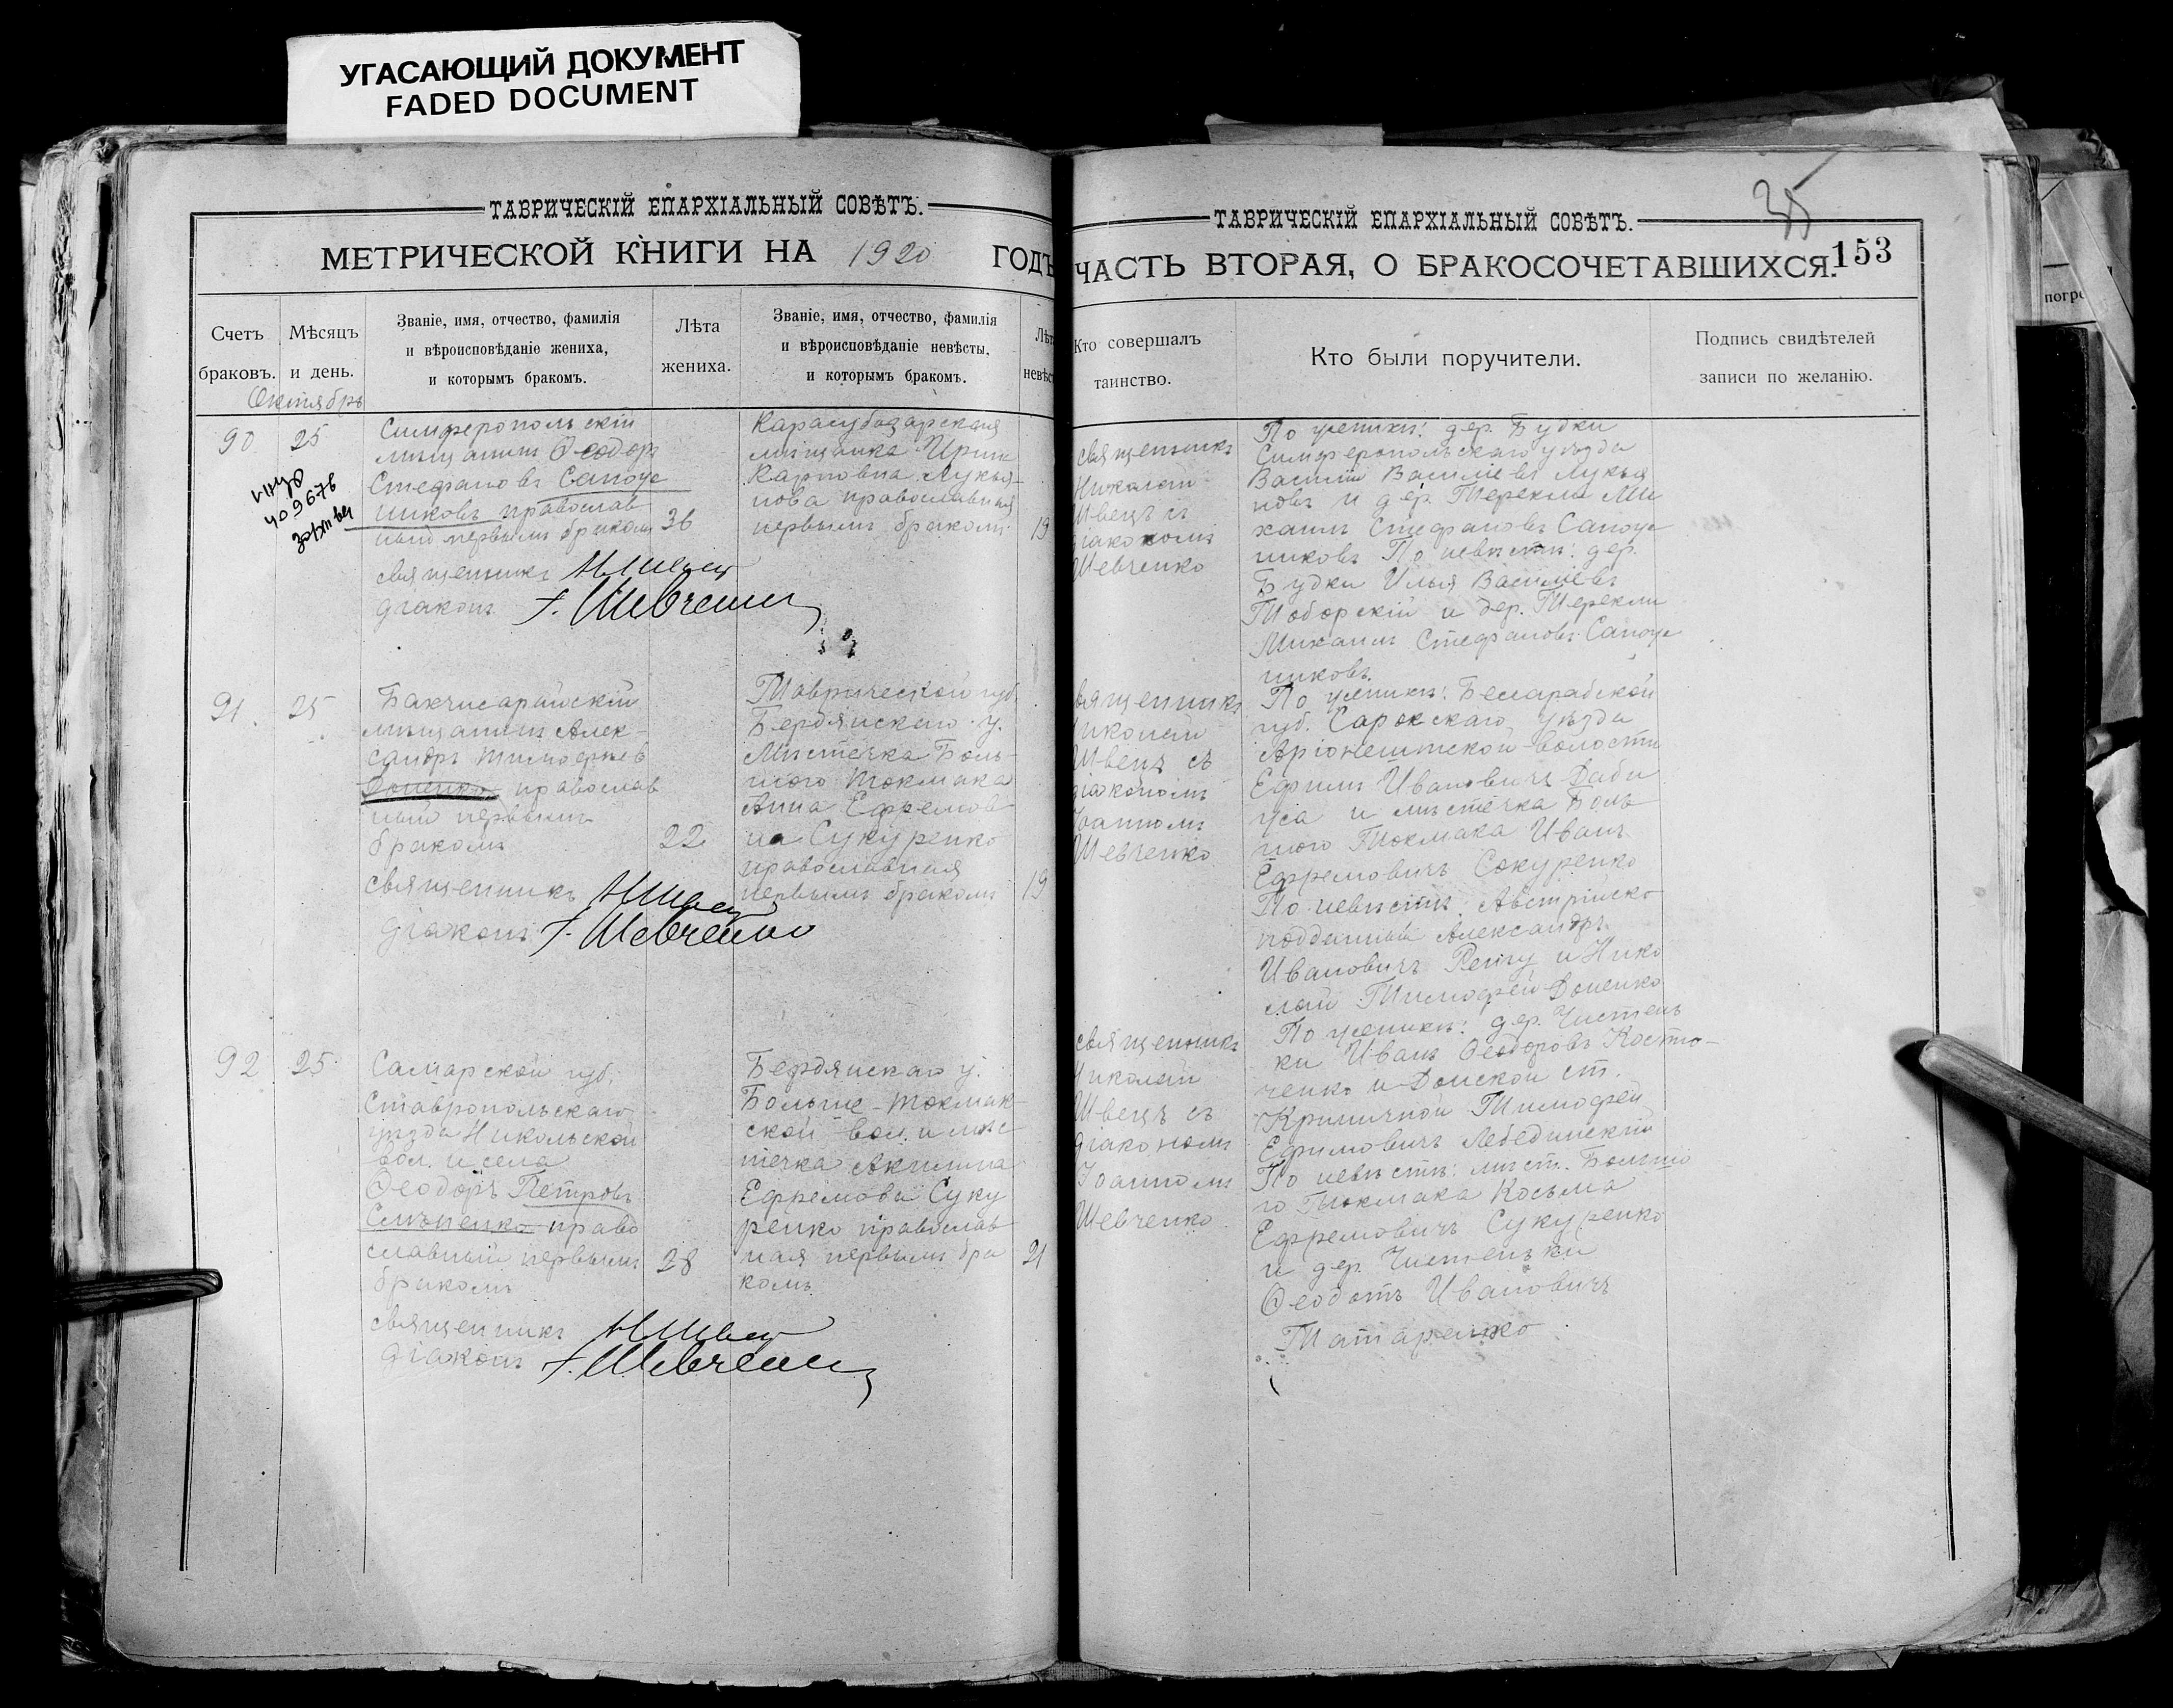 УГАСАЮЩИЙ ДОКУМЕНТ
FADED DOCUMENT
ТАВРИЧЕСКІЙ ЕПАРХІАЛЬНЫЙ СОВѢТЪ.
МЕТРИЧЕСКОЙ КНИГИ НА 1920 ГОДЪ
Счетъ браковъ.
Мѣсяцъ и день.
Званіе, имя, отчество, фамилія
и вѣроисповѣданіе жениха,
и которымъ бракомъ.
Лѣта
жениха.
Званіе, имя, отчество, фамилія
и вѣроисповѣданіе невѣсты,
и которымъ бракомъ.
Лѣта
невѣс
Октябрь
90
25
Симферопольскій
мѣщанинъ Ѳеодоръ
Стефановъ Сапож
никовъ православ
ный первымъ бракомъ
36
священникъ
діаконъ Шевченко
Карасубазарская
мѣщанка Ирина
Карповна Лукья-
нова православная
первымъ бракомъ
19
409678
91.
25
Бахчисарайскій
мѣщанинъ Алек-
сандръ Тимофеев
Доненко православ
ный первымъ
бракомъ
22
священникъ
діаконъ Шевченко
Таврической губ.
Бердянскаго у.
Мѣстечка Боль-
шого Токмака
Анна Ефремов
на Сукуренко
православная
первымъ бракомъ
19
92
25
Самарской губ.
Ставропольскаго
уѣзда Никольской
вол. и села
Ѳеодоръ Петровъ
православный первымъ
бракомъ
28
священникъ
діаконъ Шевченко
Бердянскаго у.
Больше-Токмак-
ской вол. и мѣс
течка Акилина
Ефремова Суку
ренко православ
ная первымъ бра
комъ
21
ТАВРИЧЕСКІЙ ЕПАРХІАЛЬНЫЙ СОВѢТЪ.
ЧАСТЬ ВТОРАЯ, О БРАКОСОЧЕТАВШИХСЯ.
153
Кто совершалъ
таинство.
Кто были поручители.
Подпись свидѣтелей
записи по желанію.
священникъ
Николай
Швецъ съ
діакономъ
Шевченко
По женихѣ: дер. Будки
Симферопольскаго уѣзда
Василій Василіевъ Лукья
новъ и дер. Терекли Ми
хаилъ Стефановъ Сапож
никовъ По невѣстѣ: дер.
Будки Илья Василіевъ
Тоборскій и дер. Терекли
Михаилъ Стефановъ Сапож
никовъ.
вященникъ
иколай
Швецъ съ
діакономъ
Іоанномъ
Шевченко
По женихѣ: Бессарабской
губ. Сарокскаго уѣзда
волости
Ефимъ Ивановичъ Даби
жа и мѣстечка Боль
шого Токмака Иванъ
Ефремовичъ Сокуренко
По невѣстѣ: Австрійско
подданный Александръ
Ивановичъ и Нико
лай Тимофей Доненко
священникъ
Николай
Швецъ съ
діакономъ
Іоанномъ
Шевченко
По женихѣ: дер. Чистень
ки Иванъ Ѳеодоровъ Косто-
ченко и Донской ст.
Тимофей
Ефимовичъ Лебединскій
По невѣстѣ: мѣст. Большо
го Токмака Косьма
Ефремовичъ Сукуренко
и дер. Чистеньки
Ѳеодотъ Ивановичъ
Татаренко
погре